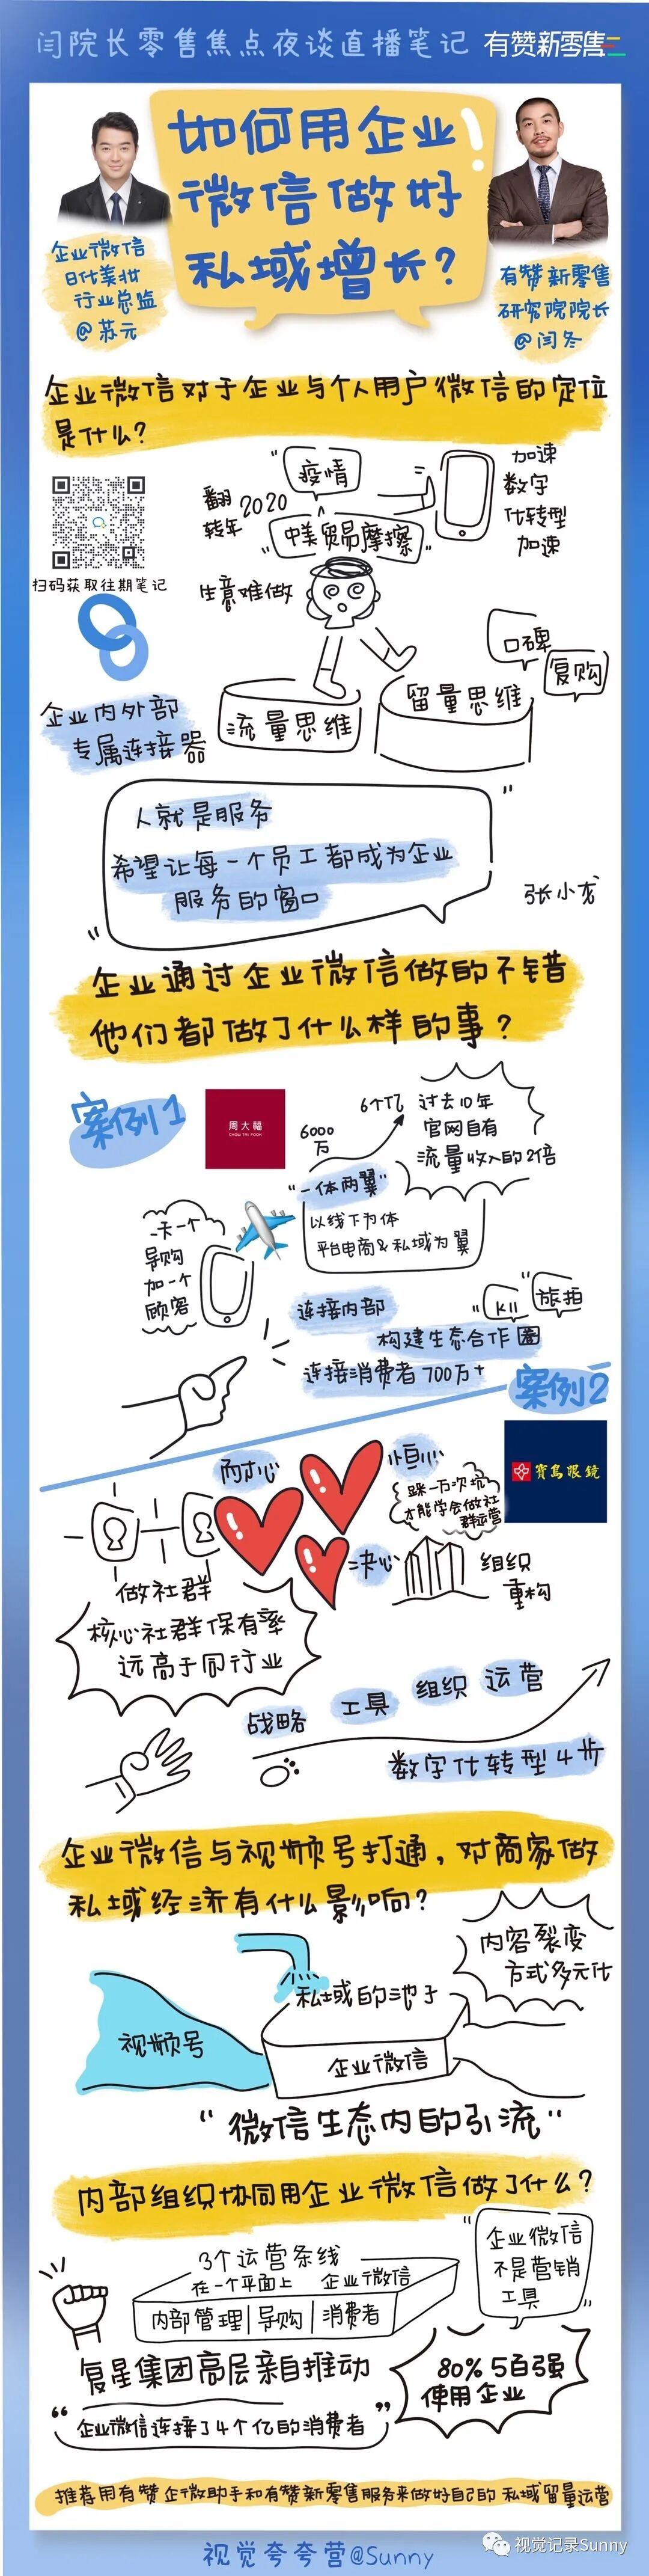 闫院长零售焦点夜谈直播笔记 有赞新零售
如何用企业
微信做好
私域增长？
企业微信
日化美妆
行业总监
@苏元
有赞新零售
研究院院长
@闫冬
企业微信对于企业与个人用户微信的定位
是什么？
扫码获取往期笔记
翻
转年
2020
“疫情
“中美贸易摩擦”
加速
数字
化转型
加速
生意难做
口碑
复购
流量思维
留量思维
企业内外部
专属连接器
人就是服务
希望让每一个员工都成为企业
服务的窗口
张小龙
企业通过企业微信做的不错
他们都做了什么样的事？
案例1
周大福
CHOW TAI FOOK
6000
万
6个亿
过去10年
官网自有
流量收入的2倍
“一体两翼”
以线下为体
平台电商&私域为翼
一天一个
导购
加一个
顾客
连接内部
旅拍
构建生态合作圈
连接消费者700万+
案例2
寶島眼鏡
耐心
恒心
决心
踩一万次坑
才能学会做社
群运营
做社群
组织
重构
核心社群保有率
远高于同行业
战略
工具
组织
运营
数字化转型4步
企业微信与视频号打通，对商家做
私域经济有什么影响？
内容裂变
方式多元化
私域的池子
视频号
企业微信
“微信生态内的引流”
内部组织协同用企业微信做了什么？
3个运营条线
在一个平面上 企业微信
内部管理|导购|消费者
“企业微信
不是营销
工具”
复星集团高层亲自推动
80%5百强
使用企业
“企业微信连接了4个亿的消费者”
推荐用有赞企微助手和有赞新零售服务来做好自己的私域留量运营
视觉夸夸营@Sunny
视觉记录Sunny